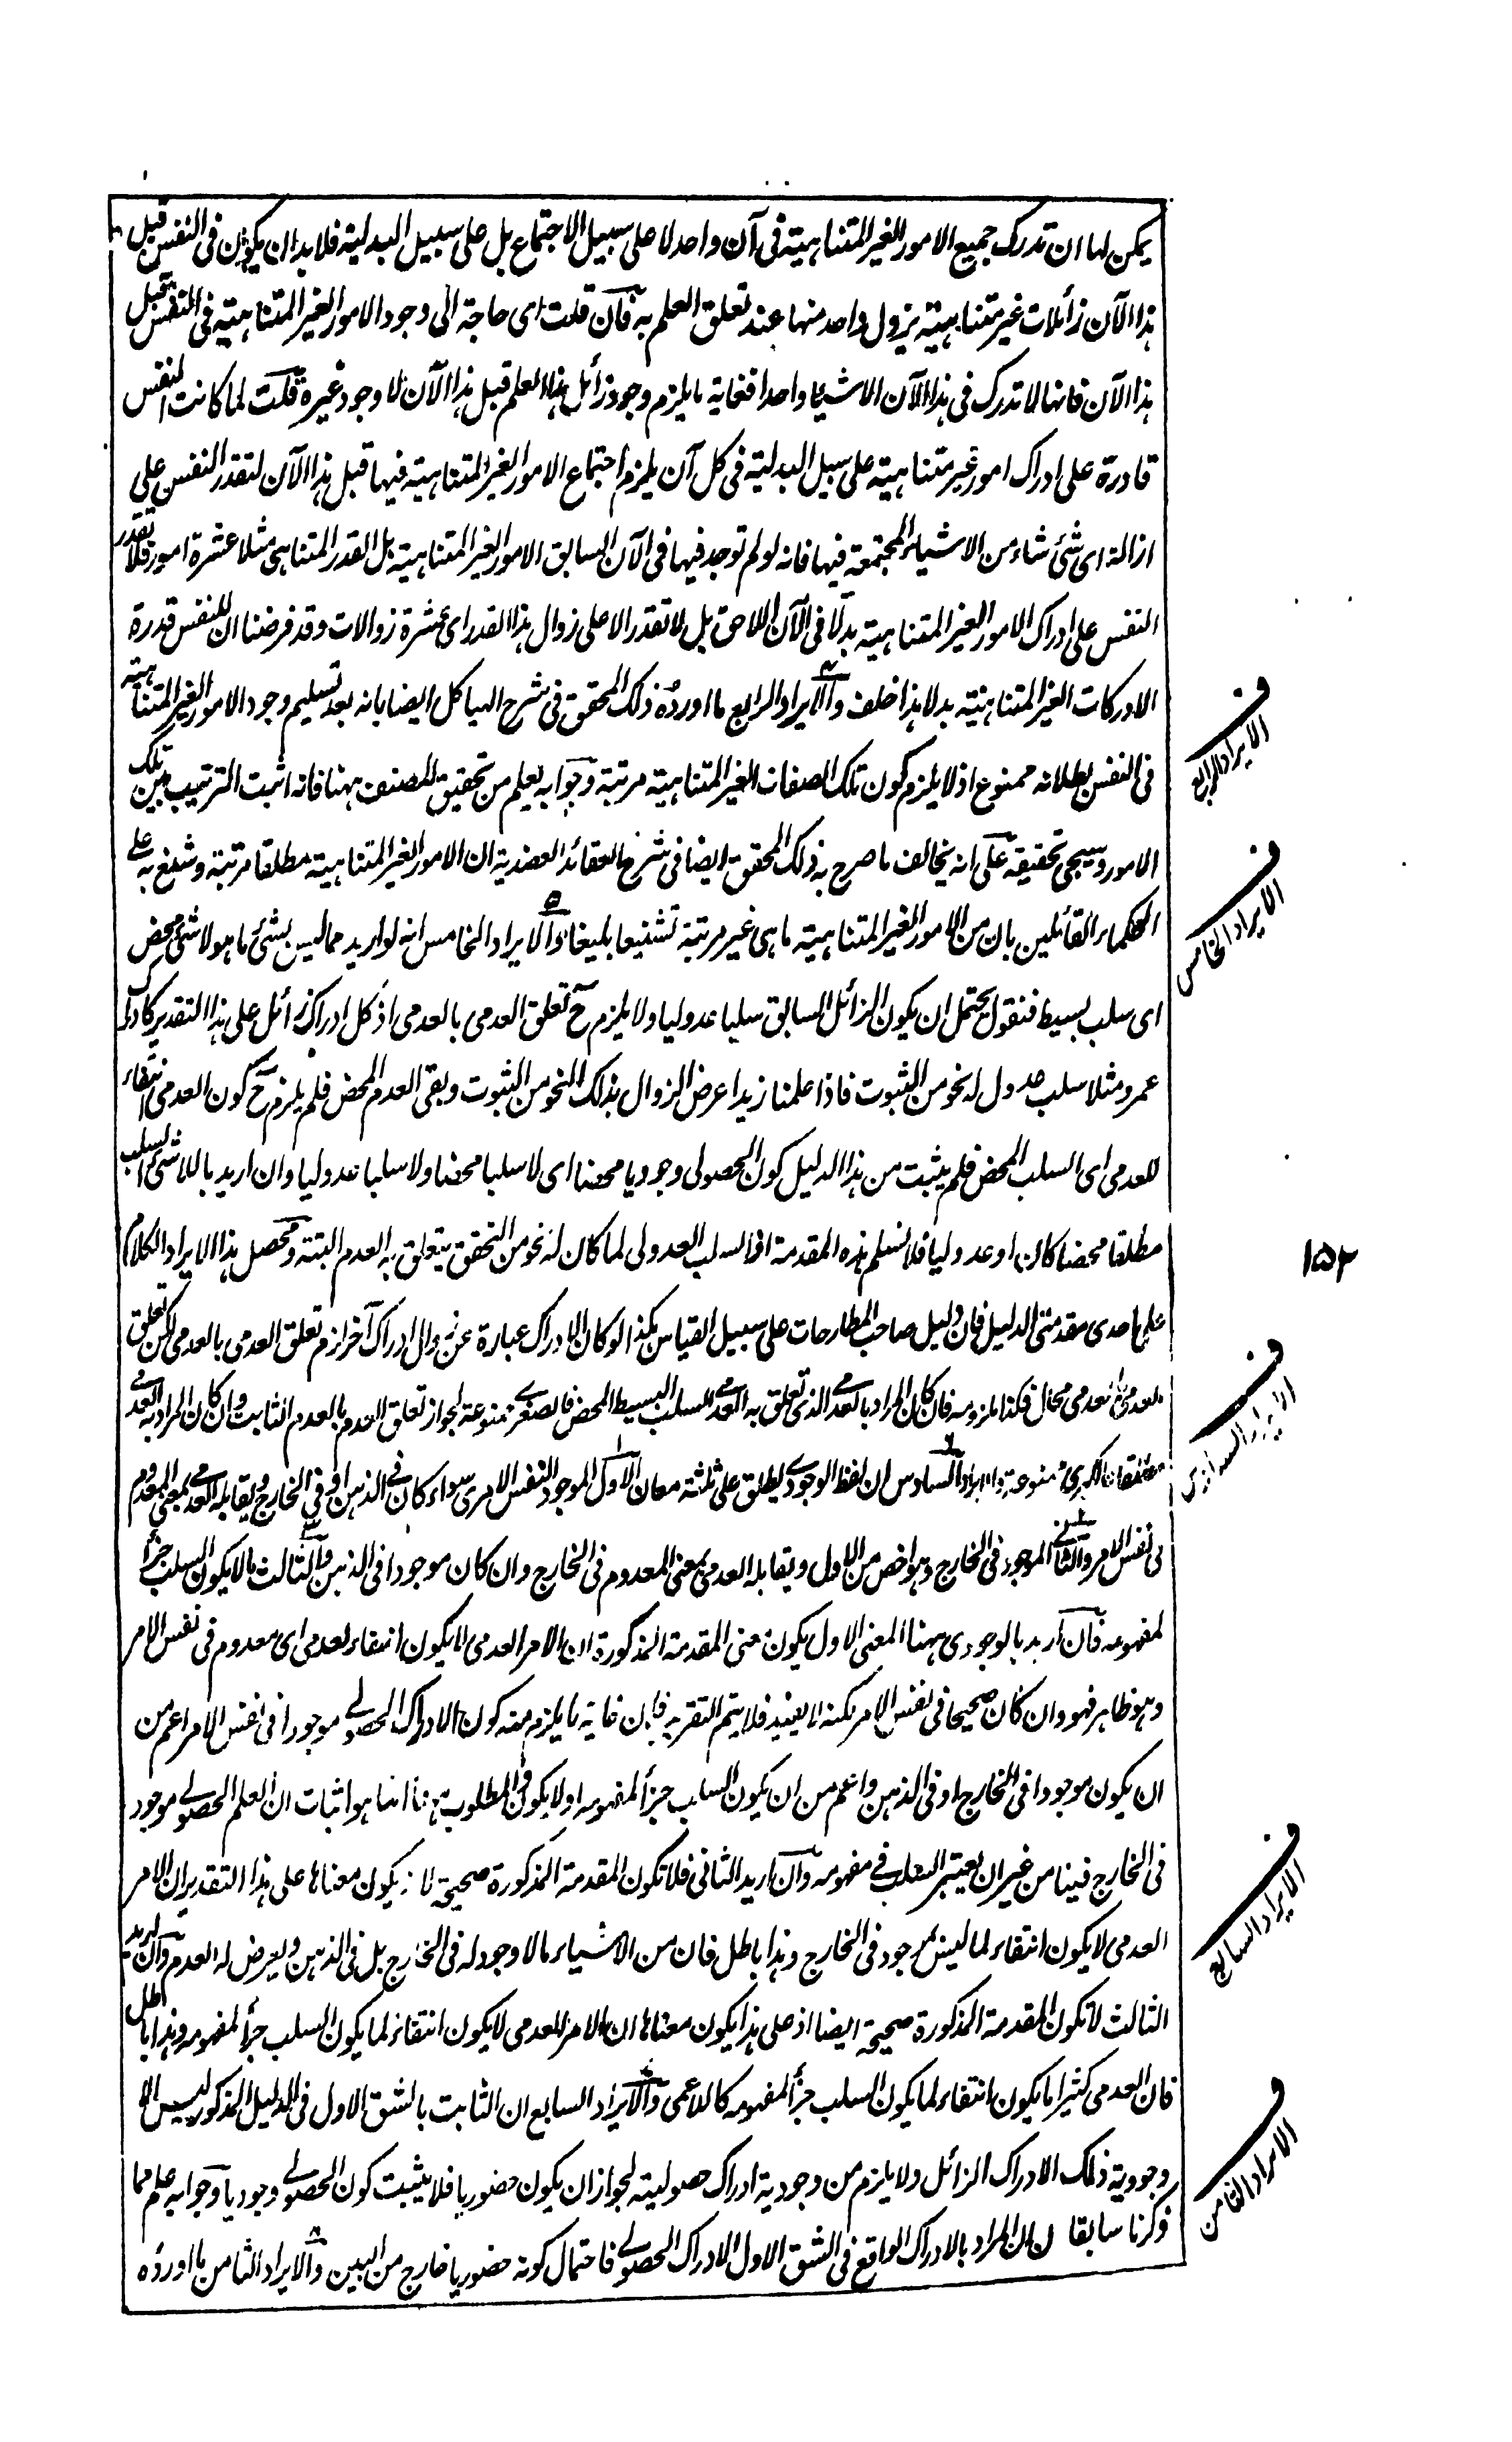 يمكن لها ان تدرك جميع الامور الغير المتناهية فى آن واحد لا على سبيل الاجتماع بل على سبيل البدلية فلا بد ان يكون فى النفس قبل
هذا الآن زائلات غير متناهية يزول واحد منها عند تعلق العلم به فان قلت اى حاجة الى وجود الامور الغير المتناهية فى النفس قبل
هذا الآن فانها لا تدرك فى هذا الآن الا شيئا واحدا فغاية ما يلزم وجود زائل هذا العلم قبل هذا الآن لا وجود غيره قلت لما كانت النفس
قادرة على ادراك امور غير متناهية على سبيل البدلية فى كل آن يلزم اجتماع الامور الغير المتناهية فيها قبل هذا الآن لتقدر النفس على
ازالة اى شئ شاء من الاشياء المجتمعة فيها فانه لو لم توجد فيها فى الآن السابق الامور الغير المتناهية بل القدر المتناهى مثلا عشرة امور فلا تقدر
النفس على ادراك الامور الغير المتناهية بدلا فى الآن اللاحق بل لا تقدر الا على زوال هذا القدر اى عشرة زوالات وقد فرضنا ان للنفس قدرة
الادركات الغير المتناهية بدلا هذا خلف والايراد الرابع ما اورده ذلك المحقق فى شرح الهياكل ايضا بانه بعد تسليم وجود الامور الغير المتناهية
فى النفس بطلانه ممنوع اذ لا يلزم كون تلك الصفات الغير المتناهية مرتبة وجوابه يعلم من تحقيق المصنف ههنا فانه اثبت الترتيب بين تلك
الامور وسيجئ تحقيقه على انه يخالف ما صرح به ذلك المحقق ايضا فى شرح العقائد العضدية ان الامور الغير المتناهية مطلقا مرتبة وشنع به على
الحكماء القائلين بان من الامور الغير المتناهية ما هى غير مرتبة تشنيعا بليغا والايراد الخامس انه لو اريد مما ليس بشئ ما هو لا شئ محض
اى سلب بسيط فنقول يحتمل ان يكون الزائل السابق سلبا عدوليا ولا يلزم ح تعلق العدمى بالعدمى اذ كل ادراك زائل على هذا التقدير كادراك
عمرو مثلا سلب عدول له نحو من الثبوت فاذا علمنا زيدا عرض الزوال بذلك النحو من الثبوت وبقى العدم المحض فلم يلزم ح كون العدمى انتفاء
للعدمى اى السلب المحض فلم يثبت من هذا الدليل كون الحصولى وجوديا محضا اى لا سلبا محضا ولا سلبا عدوليا وان اريد باللاشئ السلب
مطلقا محضا كان او عدوليا فلا نسلم هذه المقدمة اذ السلب العدولى لما كان له نحو من التحقق يتعلق به العدم البتة ومحصل هذا الايراد الكلام
على احدى مقدمتى الدليل فان دليل صاحب المطارحات على سبيل القياس هكذا لو كان الادراك عبارة عن زوال ادراك آخر لزم تعلق العدمى بالعدمى لكن تعلق
العدمى بالعدمى محال فكذا ملزومه فان كان المراد بالعدمى الذى تعلق به العدمى السلب البسيط المحض فالصغرى ممنوعة لجواز تعلق العدم بالعدم الثابت وان كان المراد به العدمى
مطلقا فالكبرى ممنوعة والايراد السادس ان لفظ الوجودى يطلق على ثلثة معان الاول الموجود النفس الامرى سواء كان فى الذهن او فى الخارج ويقابله العدمى بمعنى المعدوم
فى نفس الامر والثانى الموجود فى الخارج وهو اخص من الاول ويقابله العدمى بمعنى المعدوم فى الخارج وان كان موجودا فى الذهن والثالث ما لا يكون السلب جزأ
لمفهومه فان اريد بالوجودى ههنا المعنى الاول يكون معنى المقدمة المذكورة ان الامر العدمى لا يكون انتفاء لعدمى اى معدوم فى نفس الامر
وهو ظاهر فهو وان كان صحيحا فى نفس الامر لكنه لا يفيد فلا يتم التقريب فان غاية ما يلزم منه كون الادراك الحصولى موجودا فى نفس الامر اعم من
ان يكون موجودا فى الخارج او فى الذهن واعم من ان يكون السلب جزأ لمفهومه او لا يكون والمطلوب ههنا انما هو اثبات ان العلم الحصولى موجود
فى الخارج فينا من غير ان يعتبر السلب فى مفهومه وان اريد الثانى فلا تكون المقدمة المذكورة صحيحة لانه يكون معناها على هذا التقدير ان الامر
العدمى لا يكون انتفاء لما ليس بموجود فى الخارج وهذا باطل فان من الاشياء ما لا وجود له فى الخارج بل فى الذهن ويعرض له العدم وان اريد
الثالث لا تكون المقدمة المذكورة صحيحة ايضا اذ على هذا يكون معناها ان الامر العدمى لا يكون انتفاء لما يكون السلب جزأ لمفهومه وهذا باطل
فان العدمى كثيرا ما يكون انتفاء لما يكون السلب جزأ لمفهومه كاللاعمى والايراد السابع ان الثابت بالشق الاول فى الدليل المذكور ليس الا
وجودية ذلك الادراك الزائل ولا يلزم من وجودية ادراك حصولية لجواز ان يكون حضوريا فلا يثبت كون الحصولى وجوديا وجوابه علم مما
ذكرنا سابقا من ان المراد بالادراك الواقع فى الشق الاول الادراك الحصولى فاحتمال كونه حضوريا خارج من البين والايراد الثامن ما اورده
ف
الايراد الرابع
ف
الايراد الخامس
١٥٢
ف
الايراد السادس
ف
الايراد السابع
ف
الايراد الثامن